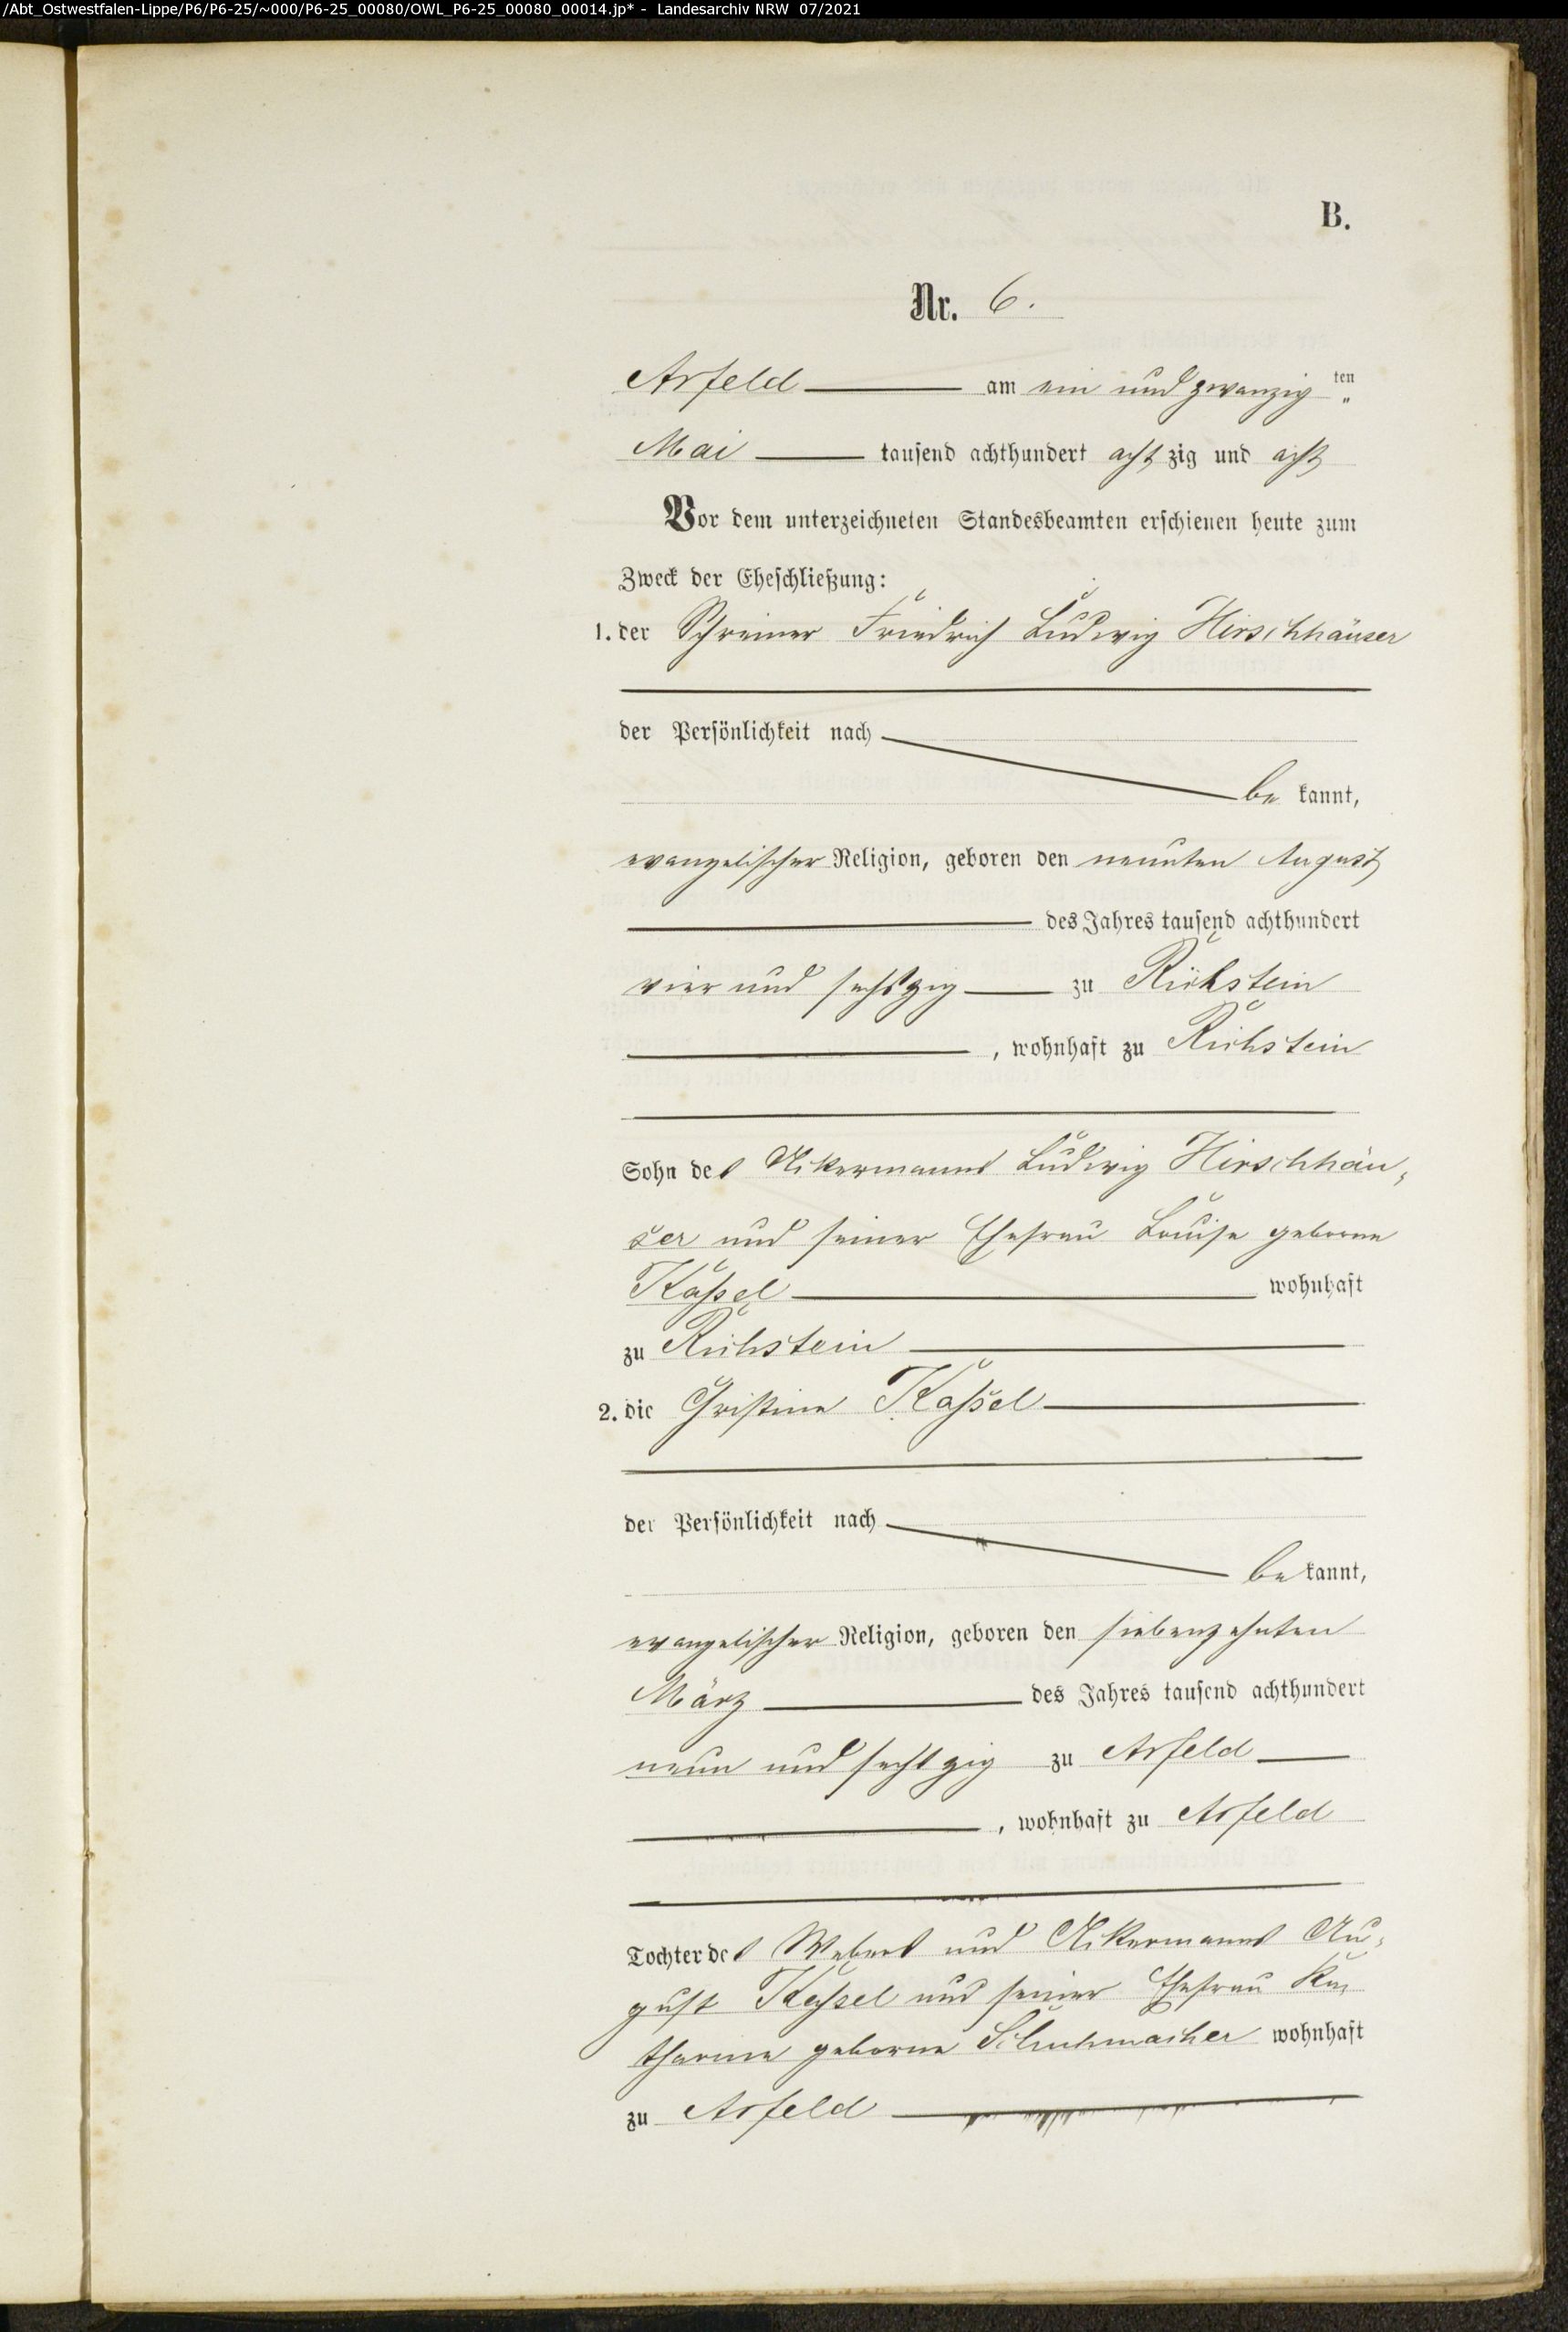 /Abt_Ostwestfalen-Lippe/P6/P6-25/~000/P6-25_00080/OWL_P6-25_00080_00014.jp* - Landesarchiv NRW 07/2021
B.
Nr. 6.
Arfeld am ein und zwanzig ten
Mai tausend achthundert acht zig und acht
Vor dem unterzeichneten Standesbeamten erschienen heute zum
Zweck der Eheschließung:
1. der Schreiner Friedrich Ludwig Hirschhäuser
der Persönlichkeit nach
be kannt,
evangelischer Religion, geboren den neunten August
des Jahres tausend achthundert
vier und sechszig zu Richstein
, wohnhaft zu Richstein
Sohn des Ackermanns Ludwig Hirschhäu,
ser und seiner Ehefrau Louise geborne
Kaßel wohnhaft
zu Richstein
2. die Christine Kaßel
der Persönlichkeit nach
be kannt,
evangelischer Religion, geboren den siebenzehnten
März des Jahres tausend achthundert
neun und sechszig zu Arfeld
, wohnhaft zu Arfeld
Tochter des Webers und Ackermanns Au,
gust Kaßel und seiner Ehefrau Ka,
tharine geborne Schuhmacher wohnhaft
zu Arfeld